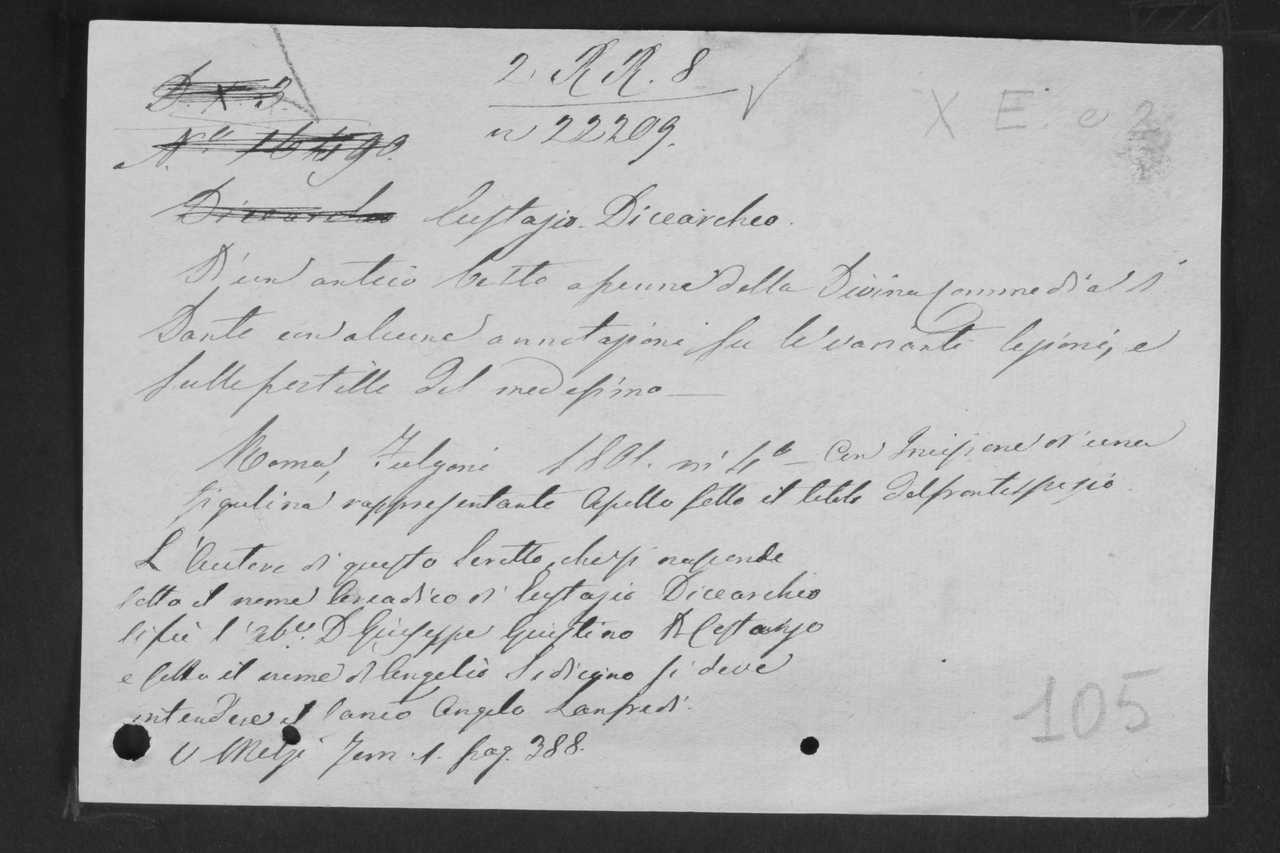 D. X 3
2. RR. 8
X E. e 2
N.o 16490.
n 22209.
Dicearcheo Eustazio Dicearcheo.
D'un antico testo a penna della Divina Commedia di
Dante con alcune annotazioni su le varianti lezioni, e
sulle postille del medesimo —
Roma, Fulgoni 1801. in 4.o — Con Incisione d'una
figulina rappresentante Apollo sotto il titolo del frontespizio.
L'Autore di questo Scritto, che si nasconde
sotto il nome Arcadico di Eustazio Dicearcheo
si fu l'ab.e D Giuseppe Giustino Di Costanzo
e sotto il nome di Angelio Sidicino si deve
intendere il Canco Angelo Lanfredi.
V Melzi Tom. 1. pag. 388.
105